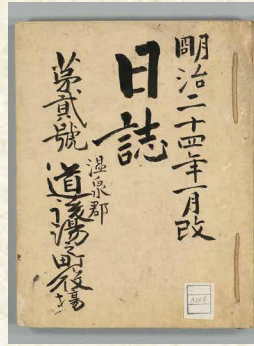 明治二十四年一月改
日誌
第貳號
温泉郡
道後湯之町役場